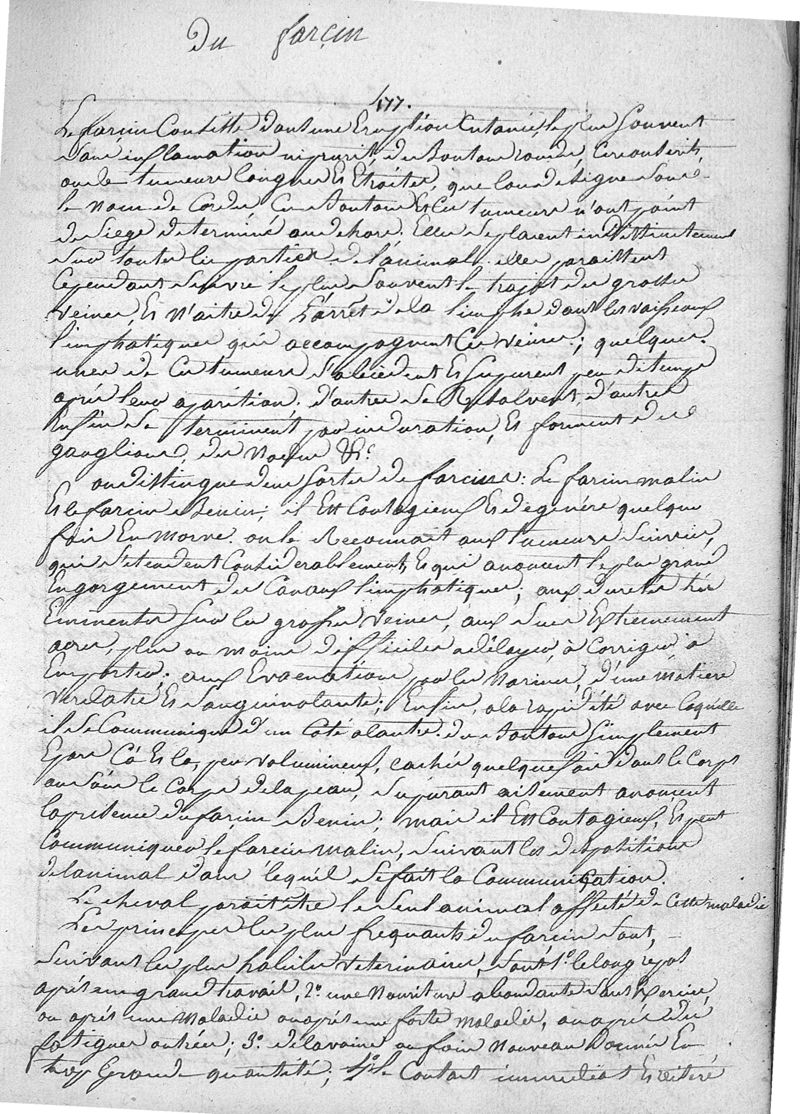 Du farcin
477.
Le farcin Consiste dans une Eruption Cutanée, le plus Souvent
sans inflamation ni prurit, des Boutons ronds, Circonscrits,
ou de tumeurs longues Et Etroites, que l'on désigne sous
le Nom de Cordes Ces Boutons Et Ces tumeurs n'ont point
de Siege determiné au dehors. Elles se placent indistinctement
sur toutes les parties de l'animal. elles paraissent
Cependant suivre le plus souvent le trajet des grosses
veines, Et N'aitre de l'arrêt de la limphe dans les vaisseaux
limphatiques qui accompagnent Ces veines; quelques
unes de Ces tumeurs s'abcèdent Et supurent peu de temps
après leur aparition. d'autres se Resolvent, d'autres
Enfin se terminent par induration, Et forment des
ganglions, des Noeuds &c.
on distingue deux Sortes de farcins: Le farcin malin
Et le farcin Benin; il Est Contagieux Et dégenère quelque
fois En morve. on le Reconnait aux tumeurs Suivies,
qui s'etendent Considerablement, Et qui anoncent le plus grand
Engorgement des Canaux limphatiques; aux duretés très
Eminentes sur les grosses veines, aux sucs Extremement
acres, plus ou moins difficiles a délayer, à Corriger, a
Emporter; aux Evacuations par les Narines, d'une matiere
verdatre Et sanguinolante; Enfin, a la rapidité avec laquelle
il se Communique d'un Coté a l'autre. des Boutons simplement
Epars Cà Et là, peu volumineux, cachés quelquefois dans le Corps
ou sous le Corps de la peau, supurant aisement anoncent
la présence du farcin Benin; mais il Est Contagieux, Et peut
Communiquer le farcin malin, suivant les dispositions
de l'animal dans lequel se fait la Communication.
Le cheval parait être le seul animal affecté de Cette maladie
Les principes les plus frequants du farcin sont,
suivant les plus habiles veterinaires, sont 1° le long repos
après un grand travail, 2° une Nouriture abondante sans Exercice,
ou après une maladie ou après une forte maladie, ou après des
fatigues outrées; 3° de l'avoine ou foin Nouveau Donnés En
trop Grande quantité; 4° le Contact immediat Et réitéré